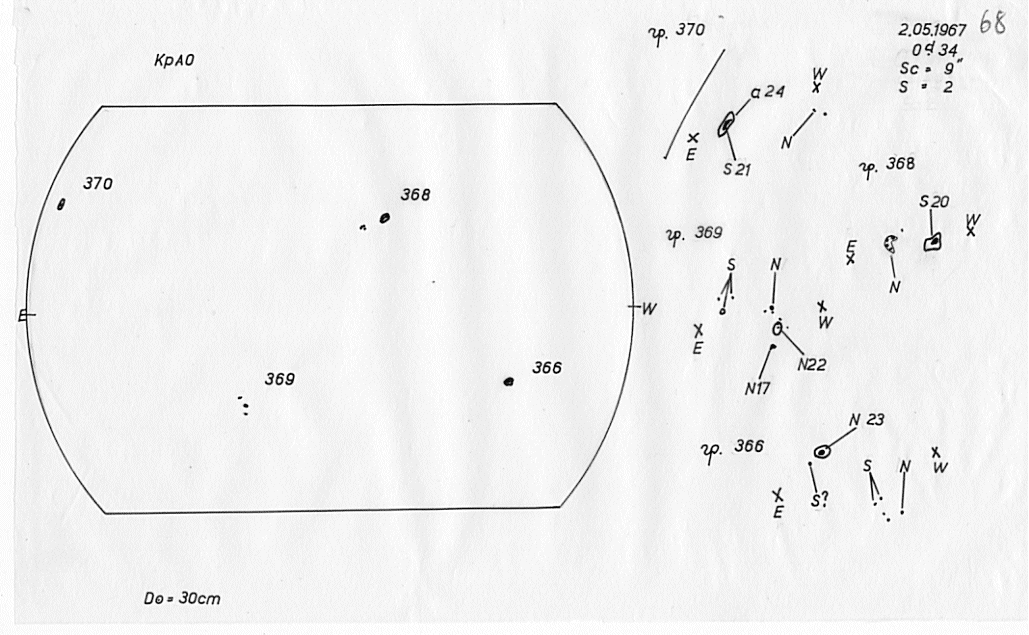 68
2.05.1967
0d 34
Sc = 9"
S = 2
КрАО
370
368
E
W
369
366
D⊙ = 30cm
гр. 370
a 24
W
x
x
E
S 21
N
гр. 368
S 20
W
x
E
x
N
гр. 369
S
N
x
E
x
W
N22
N17
гр. 366
N 23
x
W
S
N
x
E
S?